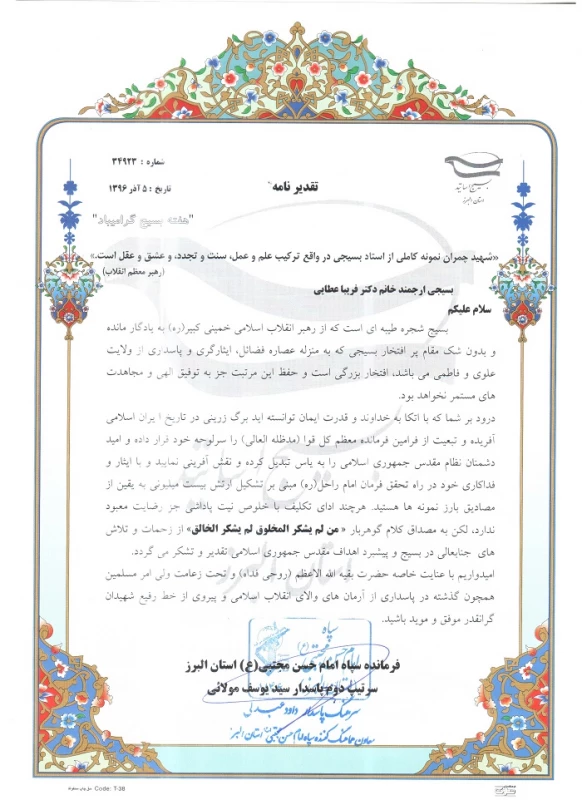 شماره : ۳۴۹۲۳
بسیج اساتید
استان البرز
تقدیر نامه
تاریخ : ۵ آذر ۱۳۹۶
"هفته بسیج گرامیباد"
«شهید چمران نمونه کاملی از استاد بسیجی در واقع ترکیب علم و عمل، سنت و تجدد، و عشق و عقل است.»
(رهبر معظم انقلاب)
بسیجی ارجمند خانم دکتر فریبا عطایی
سلام علیکم
بسیج شجره طیبه ای است که از رهبر انقلاب اسلامی خمینی کبیر(ره) به یادگار مانده
و بدون شک مقام پر افتخار بسیجی که به منزله عصاره فضائل، ایثارگری و پاسداری از ولایت
علوی و فاطمی می باشد، افتخار بزرگی است و حفظ این مرتبت جز به توفیق الهی و مجاهدت
های مستمر نخواهد بود.
درود بر شما که با اتکا به خداوند و قدرت ایمان توانسته اید برگ زرینی در تاریخ ایران اسلامی
آفریده و تبعیت از فرامین فرمانده معظم کل قوا (مدظله العالی) را سرلوحه خود قرار داده و امید
دشمنان نظام مقدس جمهوری اسلامی را به یاس تبدیل کرده و نقش آفرینی نمایید و با ایثار و
فداکاری خود در راه تحقق فرمان امام راحل(ره) مبنی بر تشکیل ارتش بیست میلیونی به یقین از
مصادیق بارز نمونه ها هستید. هرچند ادای تکلیف با خلوص نیت پاداشی جز رضایت معبود
ندارد، لکن به مصداق کلام گوهربار « من لم یشکر المخلوق لم یشکر الخالق» از زحمات و تلاش
های جنابعالی در بسیج و پیشبرد اهداف مقدس جمهوری اسلامی تقدیر و تشکر می گردد.
امیدواریم با عنایت خاصه حضرت بقیه الله الاعظم (روحی فداه) و تحت زعامت ولی امر مسلمین
همچون گذشته در پاسداری از آرمان های والای انقلاب اسلامی و پیروی از خط رفیع شهیدان
گرانقدر موفق و موید باشید.
سپاه
فرمانده سپاه امام حسن مجتبی(ع) استان البرز
سرتیپ دوم پاسدار سید یوسف مولائی
سرهنگ پاسدار داود عبدلی
معاون هماهنگ کننده سپاه امام حسن مجتبی (ع) استان البرز
Code: T-38